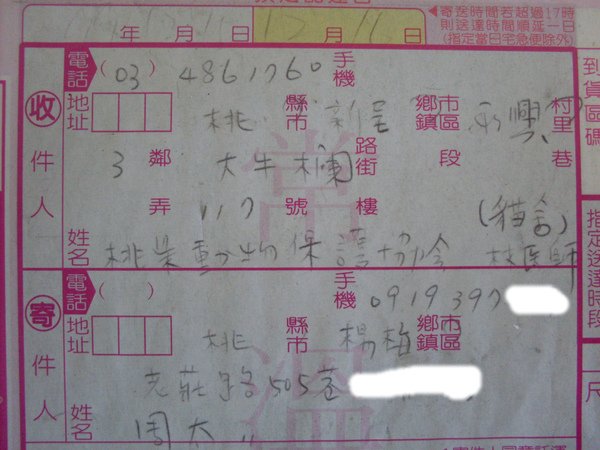 年 月 日 12 月 11 日
寄送時間若超過17時
則送達時間順延一日
(指定當日宅急便除外)
收件人
電話 (03) 4861760 手機
地址 桃 縣市 新屋 鄉鎮市區 永興 村里
3 鄰 大牛欄 路街 段 巷
弄 117 號 樓 (貓舍)
姓名 桃莱動物保護協會 林医師
常溫
寄件人
電話 ( ) 手機 0919397
地址 桃 縣市 楊梅 鄉鎮市區
路505巷
姓名 周太
到貨區碼
指定送達時段
尺